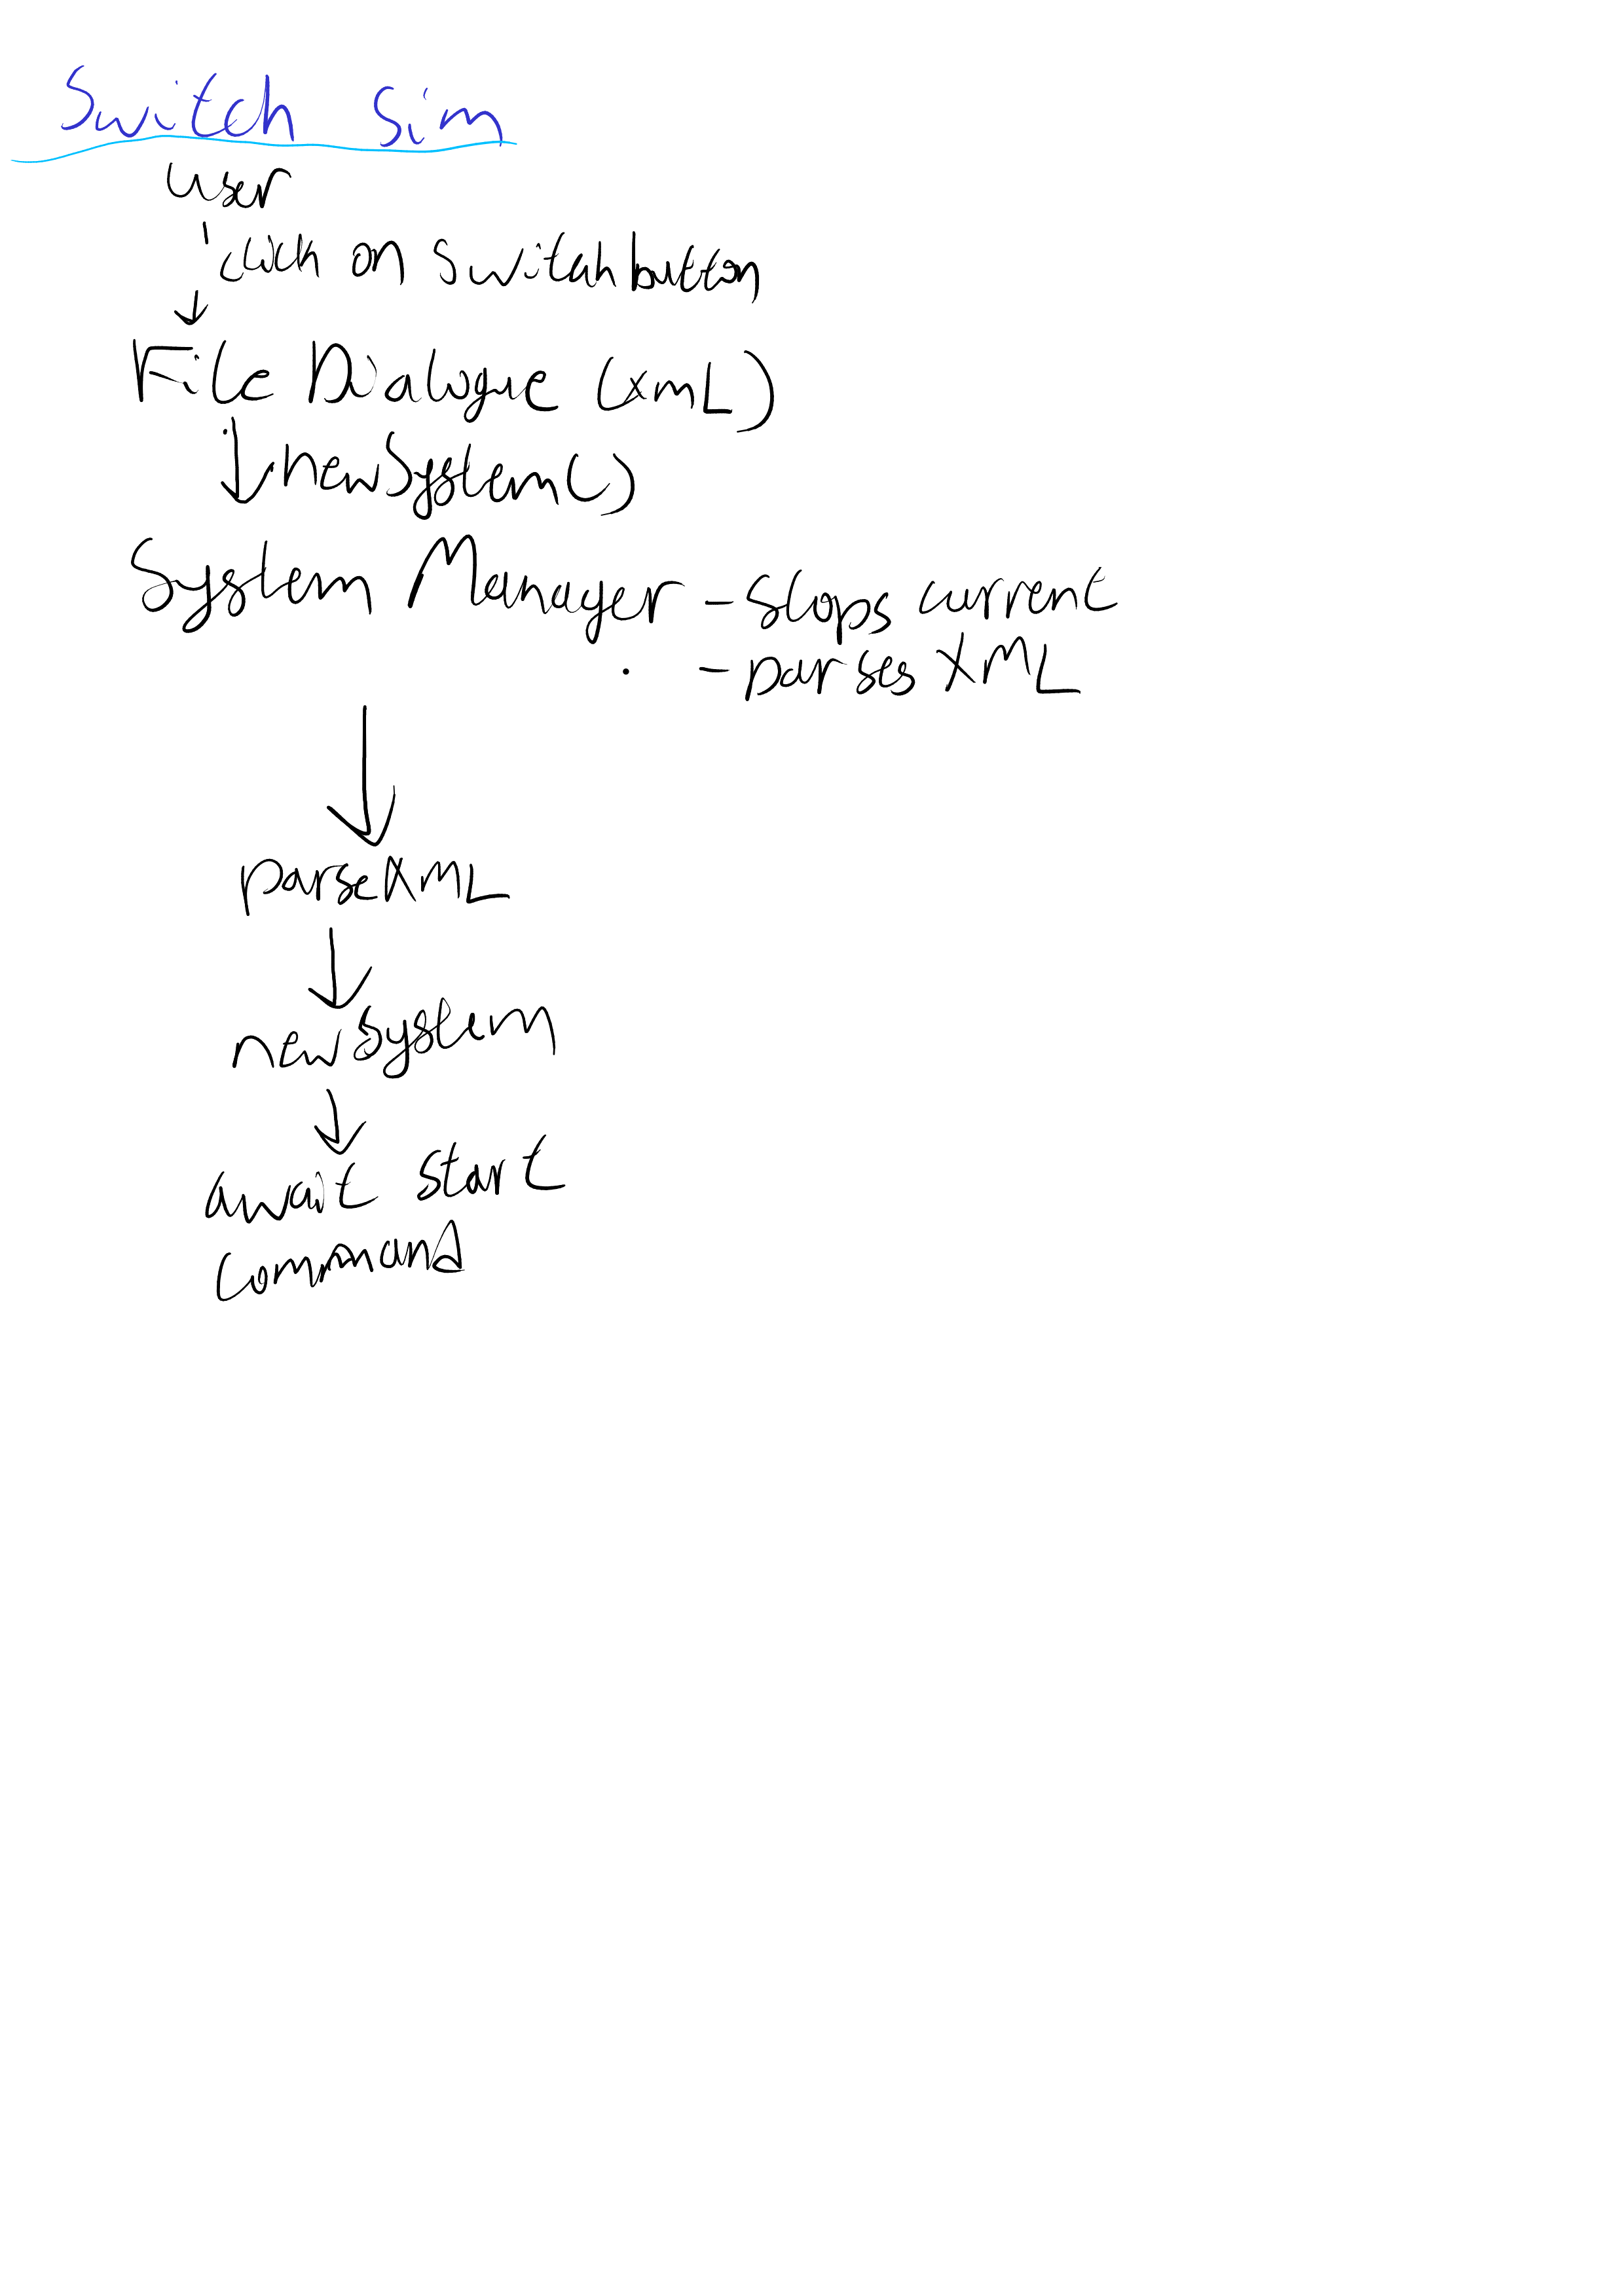 Switch Sim
user
click on switch button
File Dialogue (XML)
newSystem()
System Manager - stops current
- parses XML
parseXML
newSystem
await start
command